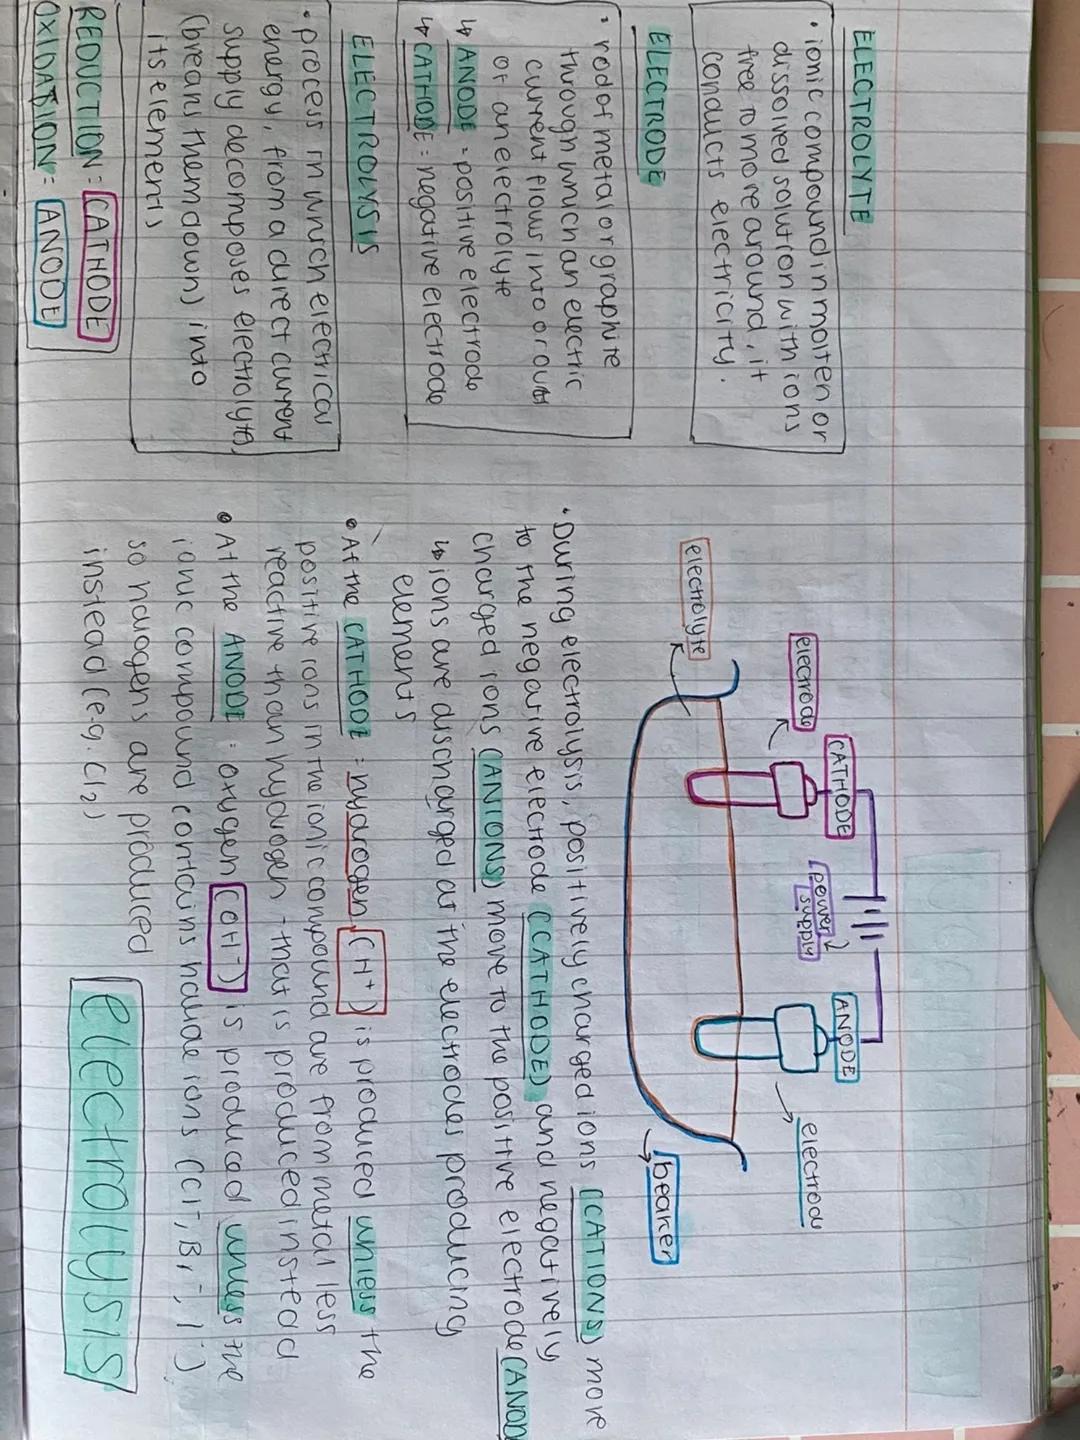 ELECTROLYTE
• ionic compound in molten or
dissolved solution with ions
free to move around, it
conducts electricity.
ELECTRODE
• rod of metal or graphite
through which an electric
current flows into or out
of an electrolyte
↳ ANODE = positive electrode
↳ CATHODE = negative electrode
ELECTROLYSIS
• process in which electrical
energy, from a direct current
supply decomposes electrolytes,
(breaks them down) into
its elements
REDUCTION = CATHODE
OXIDATION = ANODE
CATHODE
ANODE
power
supply
electrode
electrode
electrolyte
beaker
• During electrolysis, positively charged ions (CATIONS) move
to the negative electrode (CATHODE) and negatively
charged ions (ANIONS) move to the positive electrode (ANODE
↳ ions are discharged at the electrodes producing
elements
• At the CATHODE = hydrogen (H⁺) is produced unless the
positive ions in the ionic compound are from metal less
reactive than hydrogen - that is produced instead
• At the ANODE = oxygen (OH⁻) is produced unless the
ionic compound contains halide ions (Cl⁻, Br⁻, I⁻)
so halogens are produced
instead (e.g. Cl₂)
electrolysis